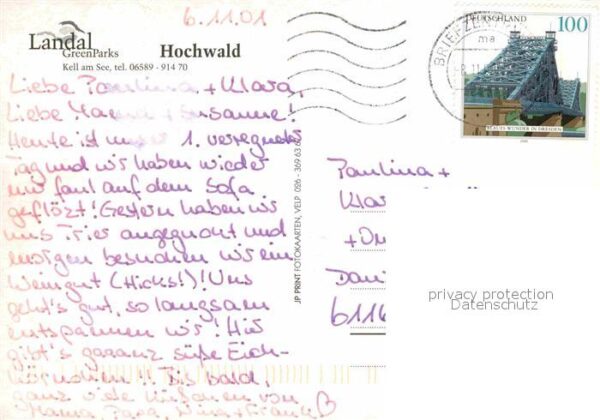 6.11.01
Landal
GreenParks
Hochwald
Kell am See, tel. 06589 - 914 70
Liebe Paulina + Klara,
Liebe Mama + Susanne!
Heute ist unser 1. verregneter
Tag und wir haben wieder
nur faul auf dem Sofa
geflözt! Gestern haben wir
uns Trier angeguckt und
morgen besuchen wir ein
Weingut (Hicks!)! Uns
geht's gut, so langsam
entspannen wir! Hier
gibt's gaaanz süße Eich-
hörnchen!! Bis bald,
ganz viele von
Mama, Papa, Nina + Frank
JP PRINT FOTOKAARTEN, VELP 026 - 369 63 6
BRIEFZEN
DEUTSCHLAND
100
BLAUES WUNDER IN DRESDEN
Paulina +
Klar
+ Om
Dani
6116
privacy protection
Datenschutz